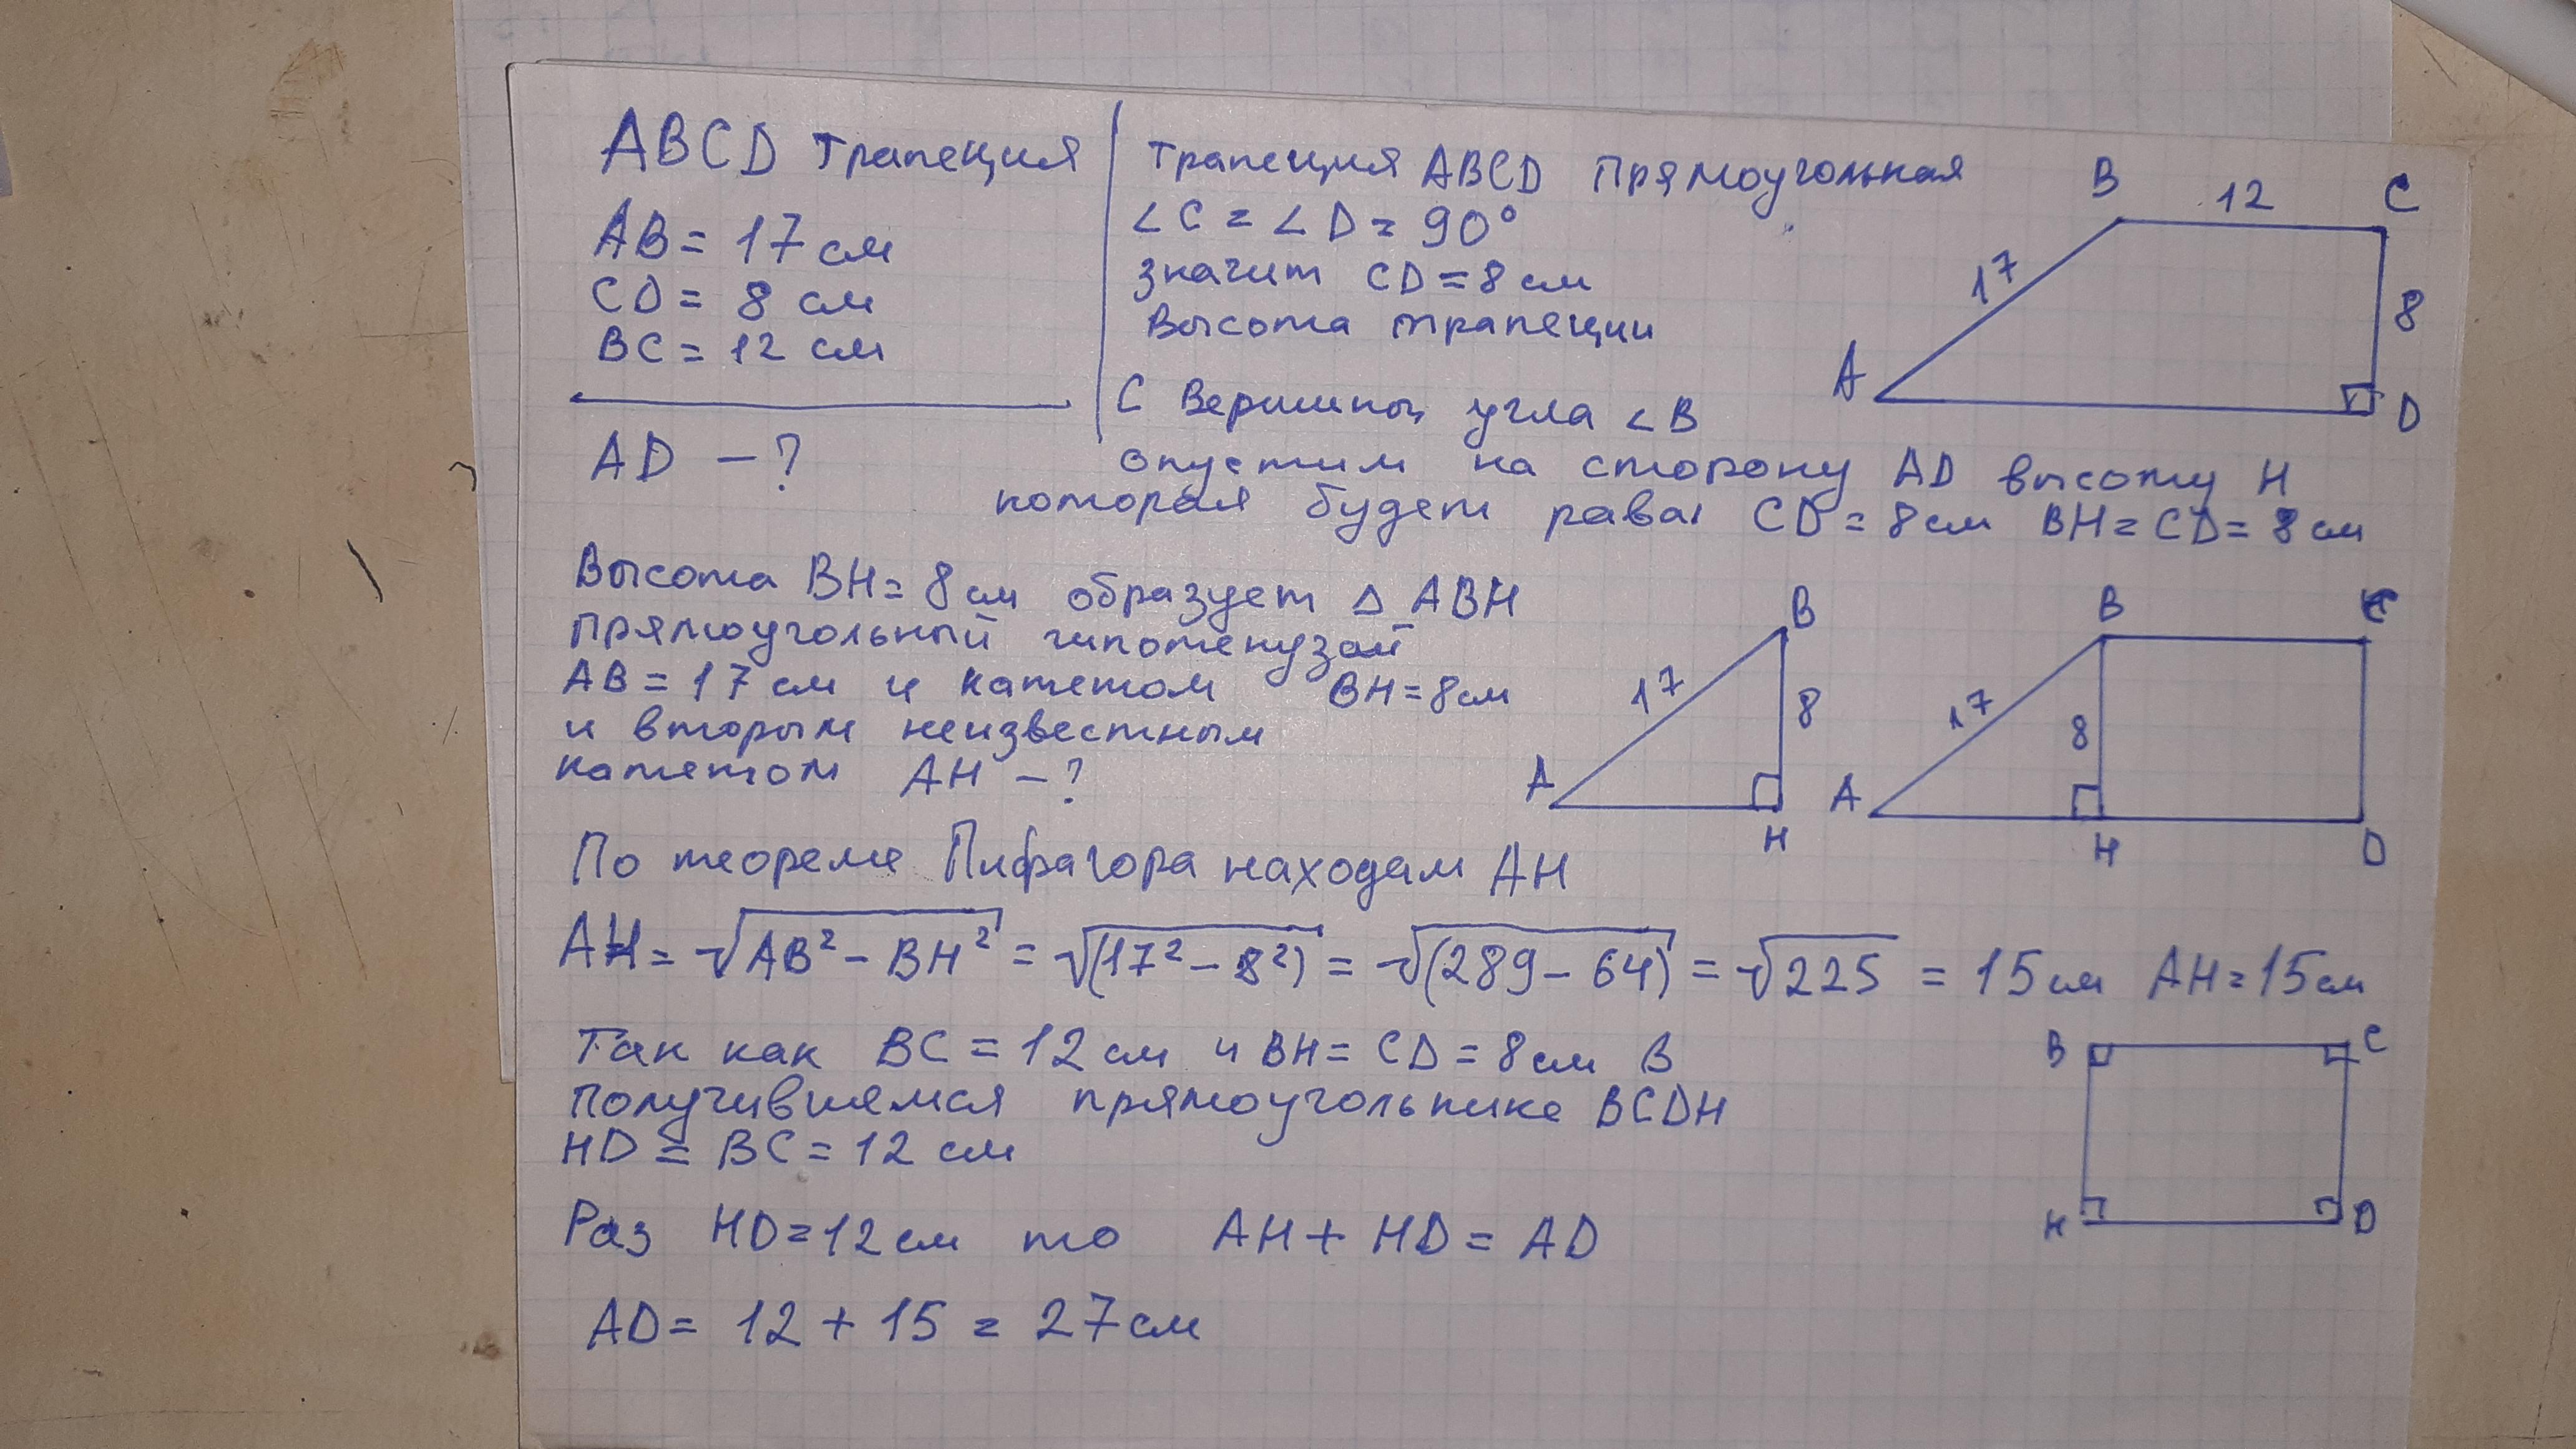 ABCD трапеция
AB = 17 см
CD = 8 см
BC = 12 см
AD – ?
трапеция ABCD прямоугольная
∠C = ∠D = 90°
значит CD = 8 см
высота трапеции
С вершины угла ∠B
опустим на сторону AD высоту H
которая будет рава CD = 8 см BH = CD = 8 см
B 12 C
17
8
A
D
Высота BH = 8 см образует Δ ABH
прямоугольный гипотенузой
AB = 17 см и катетом BH = 8 см
и вторым неизвестным
катетом AH – ?
B
17
8
A
H
B C
17
8
A
H D
По теореме Пифагора находам AH
AH = √AB² – BH² = √(17² – 8²) = √(289 – 64) = √225 = 15 см AH = 15 см
Так как BC = 12 см и BH = CD = 8 см В
получившемся прямоугольнике BCDH
HD = BC = 12 см
B C
H D
Раз HD = 12 см то AH + HD = AD
AD = 12 + 15 = 27 см